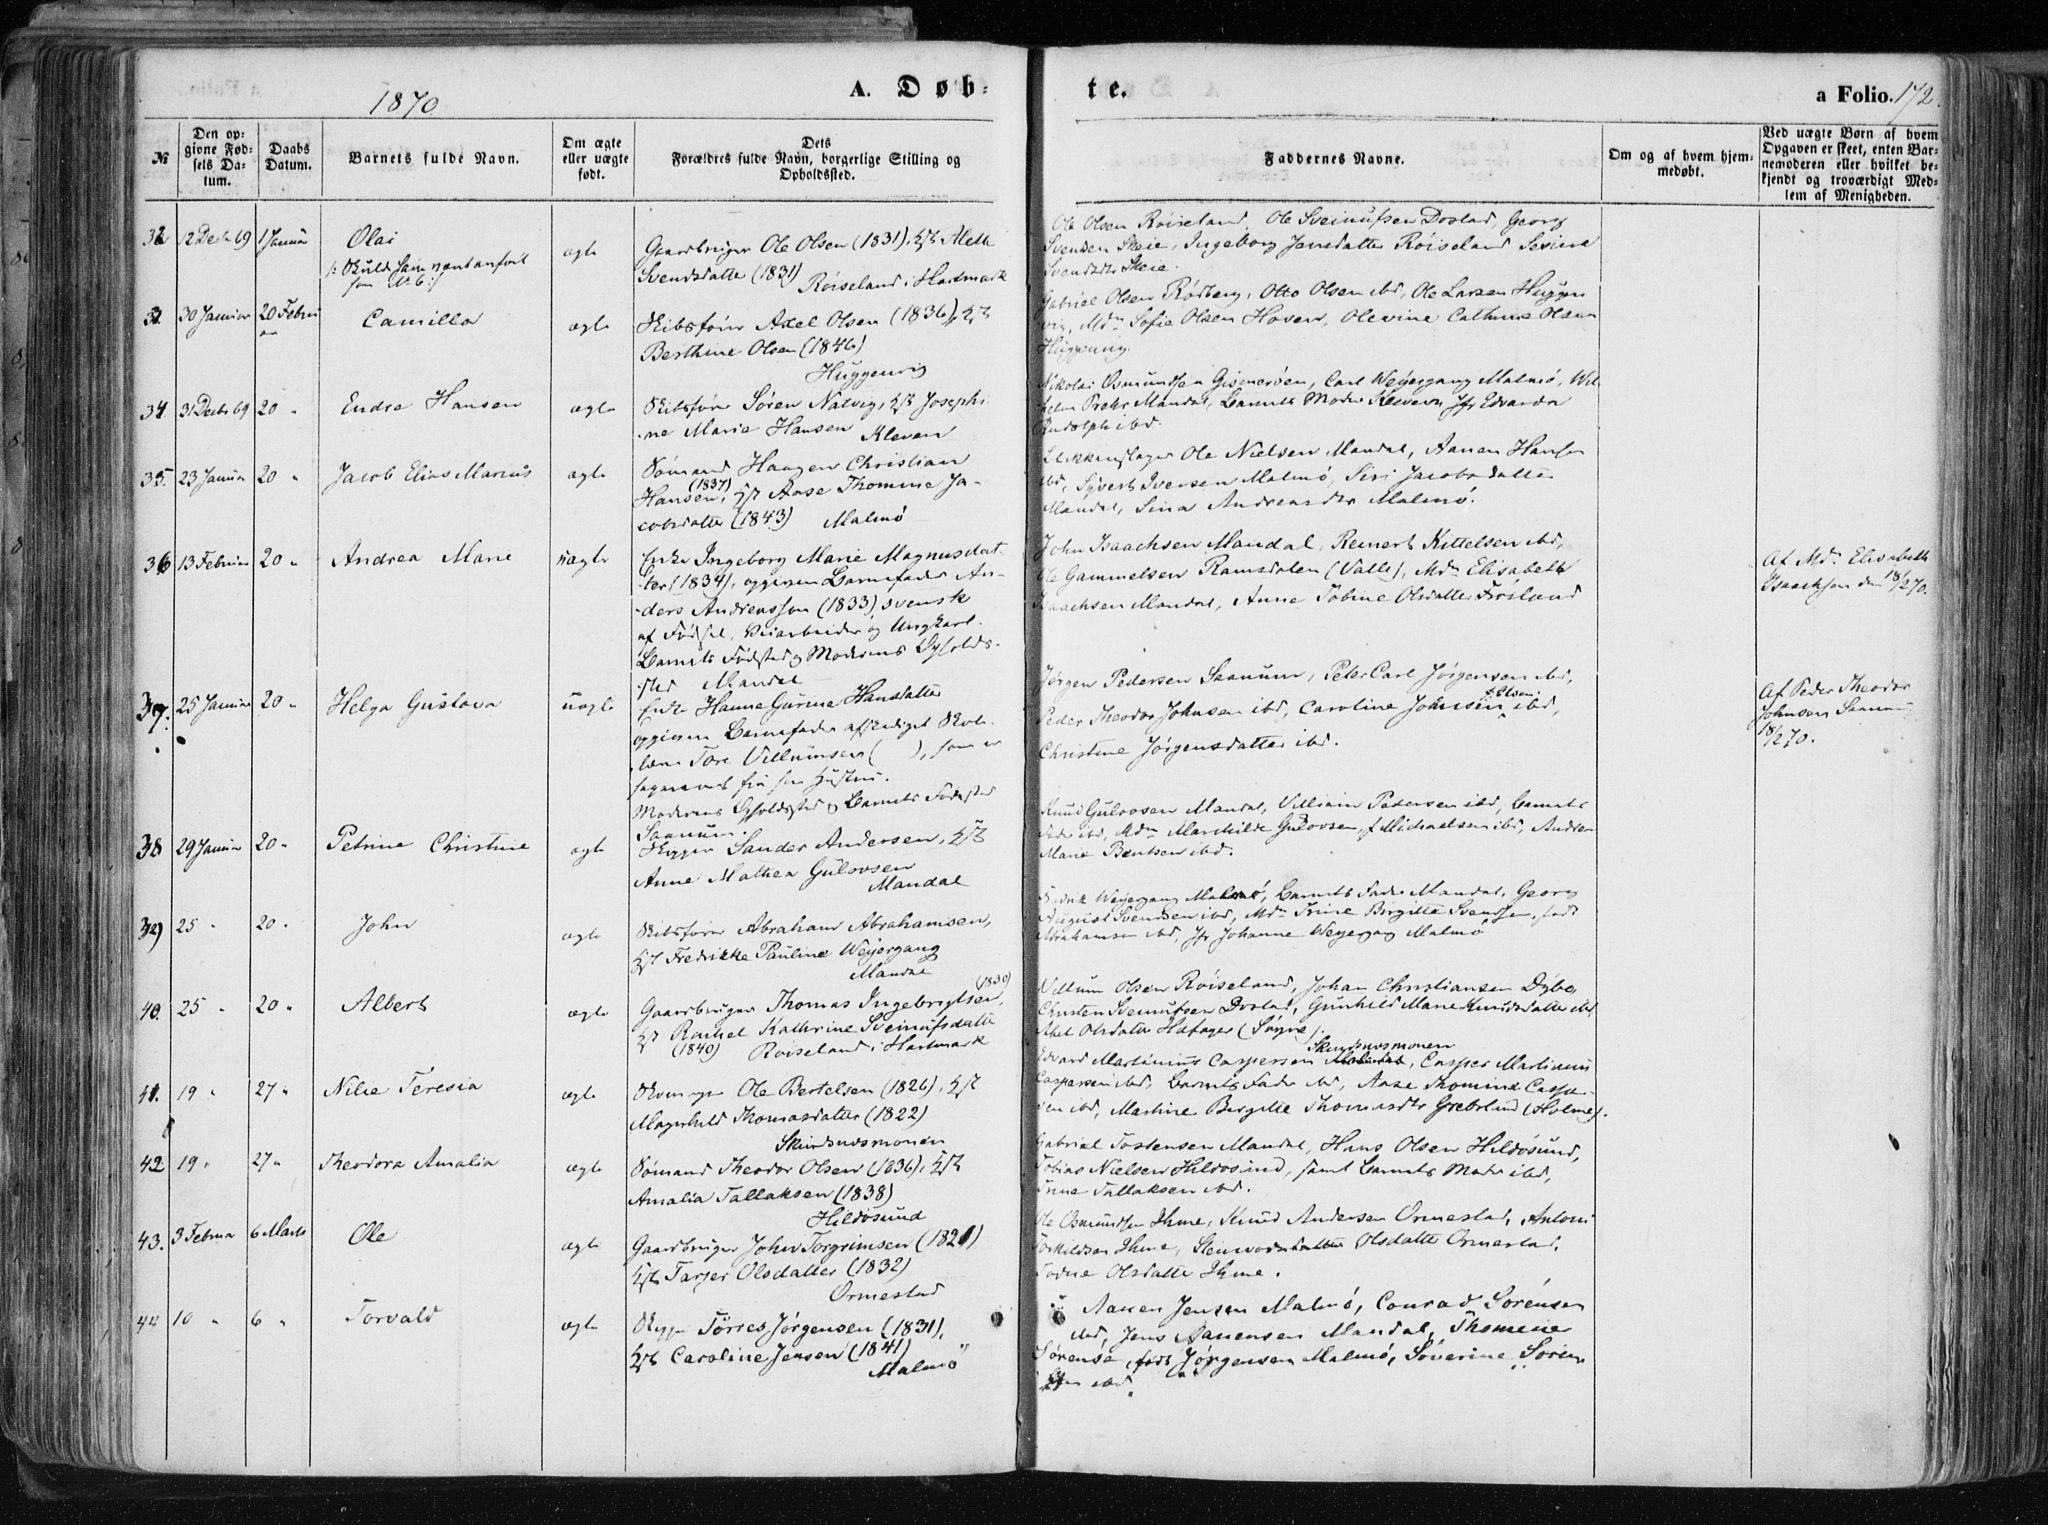 1870
A. Døb-
te.
a Folio. 172.
№
Den op-
givne Fød-
sels Da-
tum.
Daabs
Datum.
Barnets fulde Navn.
Om ægte
eller uægte
født.
Dets
Forældres fulde Navn, borgerlige Stilling og
Opholdssted.
Faddernes Navne.
Om og af hvem hjem-
medøbt.
Ved uægte Børn af hvem
Opgaven er skeet, enten Bar-
nemoderen eller hvilket be-
kjendt og troværdigt Med-
lem af Menigheden.
32 12 Decbr 69 1 Januar Olai
ægte
Gaardbruger Ole Olsen (1831), Alette
Svendsdatter (1831)
Røiseland i Hartmark
Ole Olsen Røiseland, Ole Sveinufsen Dostad, Georg
Svendsen Skeie, Ingeborg Jensdatter Røiseland
Svendsdtr Skeie.
30 Januar 20 Februar Camilla
ægte
Skibsfører Axel Olsen (1836),
Berthine Olsen (1846)
Huggenvig
Gabriel Olsen Rødberg, Otto Olsen ibd, Ole Larsen Huggen
vig, Mdm Sofie Olsen Haven, Olevine Cathrine Olsen
34 31 Decbr 69 20 " Endre Hansen
ægte
Skibsfører Sören Natvig, Josephi
ne Marie Hansen Kleven
Nikolai Osmundsen Gismerøen, Carl Weyergang Malmö, Wil
helm Mandal, Barnets Moder Kleven, Jfr Edvarda
Rudolph ibd.
35. 23 Januar 20 " Jacob Elias Marcus
ægte
Sømand Haagen Christian
Hansen (1837), Aase Thomine Ja-
cobsdatter (1843) Malmö
Ole Nielsen Mandal, Aanen Hansen
ibd, Syvert Iversen Malmö, Siri Jacobsdatter
Mandal, Sina Andreasdtr Malmö.
36 13 Februar 20 " Andrea Marie
uægte
Enke Ingeborg Marie Magnusdat-
ter (1834), opgiven Barnefader An-
ders Andreasson (1833) svensk
af Fødsel, Veiarbeider og Ungkarl.
Barnets Fødested og Moderens Opholds-
sted Mandal
John Isaachsen Mandal, Reinert Kittelsen ibd,
Ole Gammelsen Ramsdalen (Valle), Mdm Elisabeth
Isaachsen Mandal, Anne Tobine Olsdatter Frøiland
Af Mdm Elisabeth
Isaachsen den 18/2 70.
37. 25 Januar 20 " Helga Gustava
uægte
Enke Hanne Gurine Hansdatter
opgiven Barnefader afskediget Skole
lærer Tore Villumsen ( ), som er
separeret fra sin Hustru.
Moderens Opholdssted og Barnets Fødested
Saanum.
Jørgen Pedersen Saanum, Peter Carl Jørgensen ibd,
Peder Theodor Johnsen ibd, Caroline Johnsen f. Olsen ibd,
Christine Jørgensdatter ibd.
Af Peder Theodor
Johnsen Saanum
18/2 70.
38 29 Januar 20 " Petrine Christine
ægte
Skipper Sander Andersen,
Anne Mathea Gulovsen
Mandal
Knud Gulovsen Mandal, Villiam Pedersen ibd, Barnets
Fader ibd, Mdm Marthilde Gulovsen f. Michaelsen ibd, Andrea
Marie Bentsen ibd.
39 25 " 20 " John
ægte
Skibsfører Abraham Abrahamsen,
Fredrikke Pauline Weyergang
Mandal
Fredrik Weyergang Malmö, Barnets Fader Mandal, Georg
August Svendsen ibd, Mdm Trine Birgitte Svendsen, født
Abrahamsen ibd, Jfr Johanne Weyergang Malmö
40. 25 " 20 " Albert
ægte
Gaardbruger Thomas Ingebrigtsen (1830),
Rachel Kathrine Sveinufsdatter
(1840) Røiseland i Hartmark
Villum Olsen Røiseland, Johan Christiansen Dybo
Christen Sveinufsen Dostad, Gunhild Marie Knudsdatter ibd
Abel Olsdatter (Søgne).
41. 19 " 27 " Nilie Teresia
ægte
Ole Bertelsen (1826),
Magnhild Thomasdatter (1822)
Skindsnesmonen
Edvard Martinius Caspersen Skindsnesmonen, Casper Martinius
Caspersen ibd, Barnets Fader ibd, Aase Thomine Casper
sen ibd, Martine Birgitte Thomasdtr Grebslund (Holme).
42 19 " 27 " Theodora Amalia
ægte
Sømand Theodor Olsen (1836),
Amalia Tallaksen (1838)
Hildøsund
Gabriel Tostensen Mandal, Hans Olsen Hildøsund,
Tobias Nielsen Hildøsund, samt Barnets Moder ibd,
Trine Tallaksen ibd.
43. 3 Februar 6 Marts Ole
ægte
Gaardbruger John Torgrimsen (1821)
Tarjer Olsdatter (1832)
Ormestad
Ole Osmundsen Ihme, Knud Andersen Ormestad, Antoni
Torkildsen Ihme, Olsdatter Ormestad,
Todne Olsdatter Ihme.
44 10 " 6 " Torvald
ægte
Skipper Törres Jörgensen (1831),
Caroline Jensen (1841)
Malmö
Aanen Jensen Malmö, Conrad Sörensen
ibd, Jens Aanensen Mandal, Thomine
Sørensen født Jørgensen Malmö, Severine Søren
sen ibd.